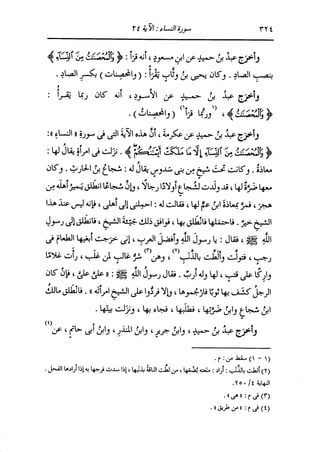 ٣٢٤ سورة النساء : الآية ٢٤
وأخرَج عبدُ بنُ حميدٍ عن ابنِ مسعودٍ ، أنه قرَأ : ﴿ وَالْمُحْصَنَتُ مِنَ النِّسَاءِ ﴾
بنصبِ الصادِ . وكان يحيى بنُ وثَّابٍ يَقْرَأُ : ( والمحصِناتُ ) بكسرِ الصادِ .
وأخرَج عبدُ بنُ حميدٍ عن الأسودِ ، أنه كان ربما يَقْرأُ :
﴿ وَالْمُحْصَنَتُ ﴾ ، (١) وربَّما قرَأ (١) ( والمحصِناتُ ) .
وأخرَج عبدُ بنُ حميدٍ عن عكرمةَ ، أن هذه الآيةَ التى فى سورةِ « النساءِ » :
﴿ وَالْمُحْصَنَتُ مِنَ النِّسَاءِ إِلَّا مَا مَلَكَتْ أَيْمَنُكُمْ ﴾ . نزَلت فى امرأةٍ يقالُ لها :
معاذةُ . وكانت تحتَ شيخٍ من بنى سَدوسٍ يقالُ له : شجاعُ بنُ الحارثِ . وكان
معها ضَرَّةٌ لها ، قد ولَدت لشجاعٍ أولادًا رجالًا ، وإن شجاعًا انطلَق يَميرُ أهلَه من
هجَرَ ، فمرَّ بمعاذةَ ابنُ عمٍّ لها ، فقالت له : احمِلْنى إلى أهلى ، فإنه ليس عندَ هذا
الشيخِ خيرٌ . فاحتمَلها فانطلَق بها ، فوافَق ذلك جيئةَ الشيخِ ، فانطلَق إلى رسولِ
اللهِ ﷺ ، فقال : يا رسولَ اللهِ وأفضلَ العربِ ، إنى خرَجتُ أبغيها الطعامَ فى
رجبٍ ، فتولَّت وألطَّت بالذنَبِ (٢) ، وهى (٣) شرُّ غالبٍ لمن غلَب ، رأت غلامًا
واركًا على قتَبٍ ، لها وله أربٌ . فقال رسولُ اللهِ ﷺ : « علىَّ علىَّ ، فإن كان
الرجلُ كشَف بها ثوبًا فارجُموها ، وإلا فرُدُّوا على الشيخِ امرأتَه » . فانطلَق مالكُ
ابنُ شجاعٍ وابنُ ضَرَّتِها ، فطلَبها ، فجاء بها ، ونزَلت بيتَها .
وأخرَج عبدُ بنُ حميدٍ ، وابنُ جريرٍ ، وابنُ المنذرِ ، وابنُ أبى حاتمٍ ، عن (٤)
(١ - ١) سقط من : م .
(٢) ألطت بالذنب : أراد : منعته بُضْعَها ، من لطت الناقة بذنبها ، إذا سدت فرجها به إذا أرادها الفحل .
النهاية ٤/ ٢٥٠ .
(٣) فى م : « هى » .
(٤) فى م : « من طريق » .